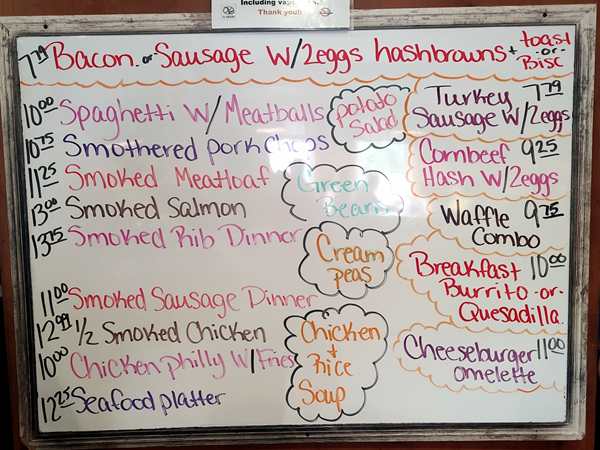 Including vap
Thank you!!
7.79 Bacon or Sausage W/2eggs hashbrowns + toast
-or-
Bisc
10.00 Spaghetti W/Meatballs
10.75 Smothered pork chops
11.25 Smoked Meatloaf
13.00 Smoked Salmon
13.75 Smoked Rib Dinner
11.00 Smoked Sausage Dinner
12.99 1/2 Smoked Chicken
10.00 Chicken philly W/Fries
12.25 Seafood platter
Potato
Salad
Green
Beans
Cream
peas
Chicken
+
Rice
Soup
Turkey 7.79
Sausage W/2eggs
Cornbeef 9.25
Hash W/2eggs
Waffle 9.75
Combo
Breakfast 10.00
Burrito -or-
Quesadilla
Cheeseburger 11.00
omelette